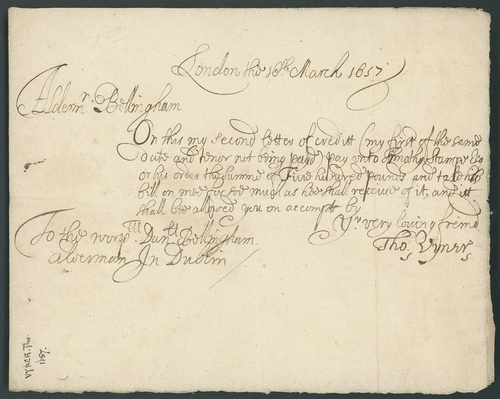 London the 16th March 1657
Alderm^n: Bellingham
On this my second letter of creditt (my first of the same
date and tenor not being paid) pay unto Timothy Stampe Esq
or his order the summe of Five hundred pounds and take his
bill on mee for soe much as hee shall receive of it, and itt
shall bee allowed you on accompt by
Yr: very loving freind
Tho: Vyner
To the worp^ll Dan^ll Bellingham
Alderman In Dublin
VYNER. Tho.
1157.